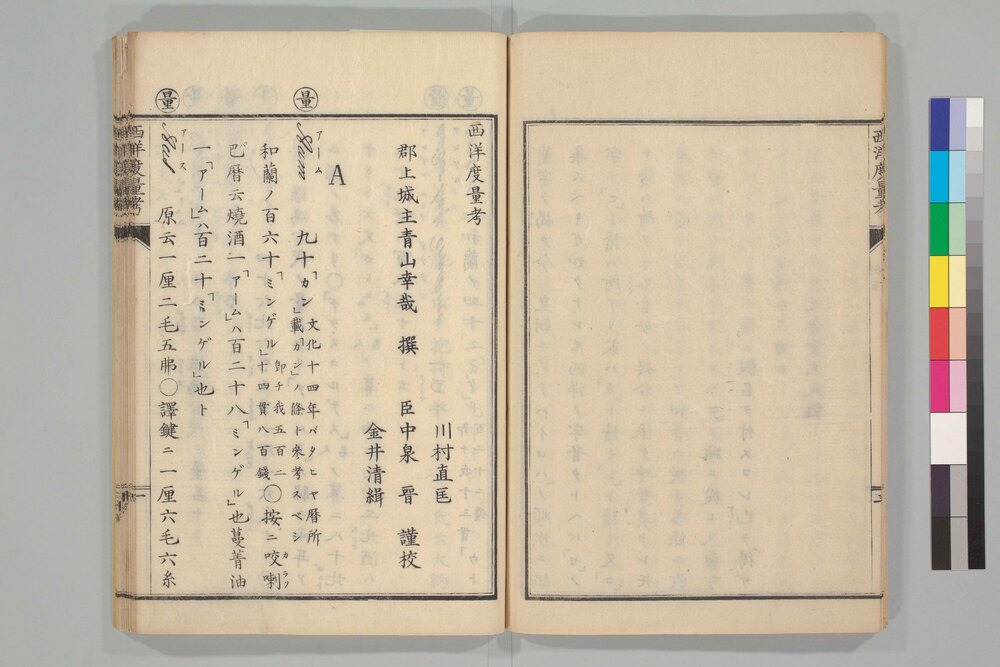 西洋度量考
西洋度量考
川村直匡
郡上城主青山幸哉 撰 臣中泉 晋 謹挍
金井清緝
A
量
アーム
Aam 九十「カン」文化十四年バタヒヤ暦所
載「カン」ノ條ト參考スベシ
和蘭ノ百六十「ミンゲル」卽チ我五百二
十四貫八百錢〇按ニ咬𠺕
カラフ
巴暦云燒酒一「アーム」ハ百二十八「ミンゲル」也蔓菁油
一「アーム」ハ百二十「ミンゲル」也ト
量
アース
原云一厘二毛五弗〇譯鍵ニ一厘六毛六糸
西洋度量考
一